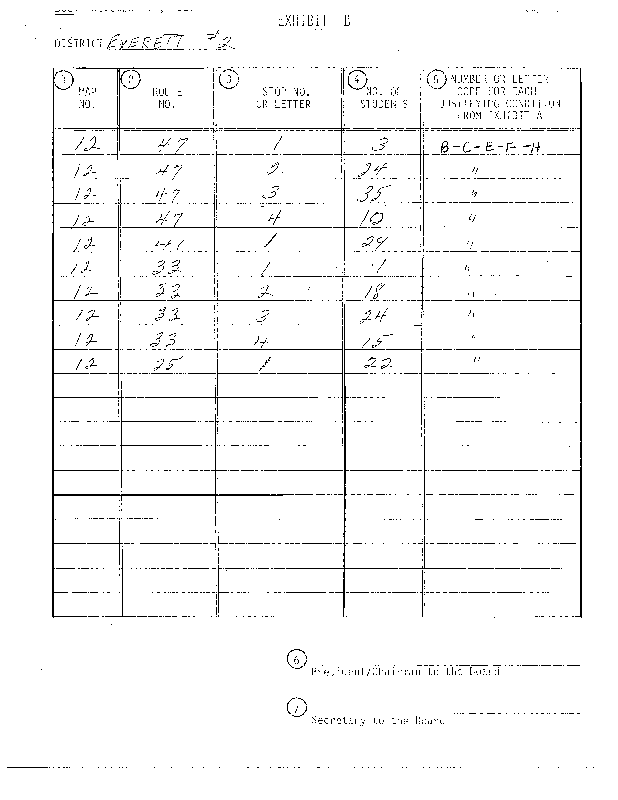 EXHIBIT B
DISTRICT EVERETT #2
1 MAP NO. 2 ROUTE NO. 3 STOP NO. OR LETTER 4 NO. OF STUDENTS 5 NUMBER OR LETTER CODE FOR EACH JUSTIFYING CONDITION FROM EXHIBIT A
12 47 1 3 B-C-E-F-H
12 47 2 24 "
12 47 3 35 "
12 47 4 10 "
12 1 29 "
12 33 1 1 "
12 33 2 18 "
12 33 3 24 "
12 33 4 15 "
12 25 1 22 "
6
President/Chairman to the Board
7
Secretary to the Board